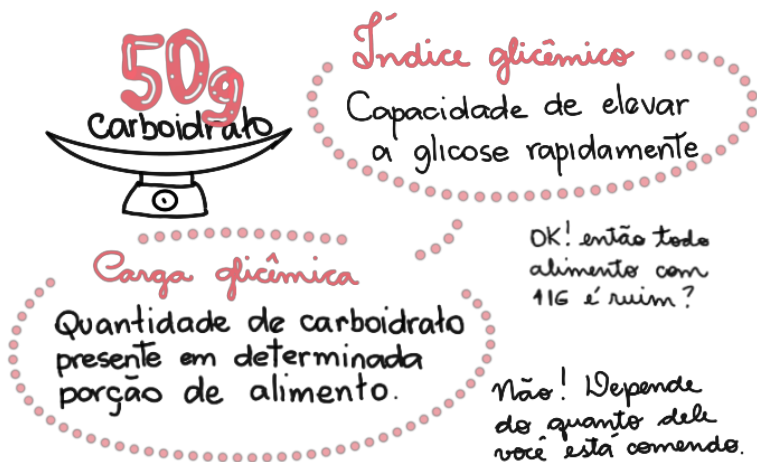 50g
carboidrato
Índice glicêmico
Capacidade de elevar
a glicose rapidamente
Carga glicêmica
Quantidade de carboidrato
presente em determinada
porção de alimento.
OK! então todo
alimento com
↑IG é ruim?
Não! Depende
do quanto dele
você está comendo.